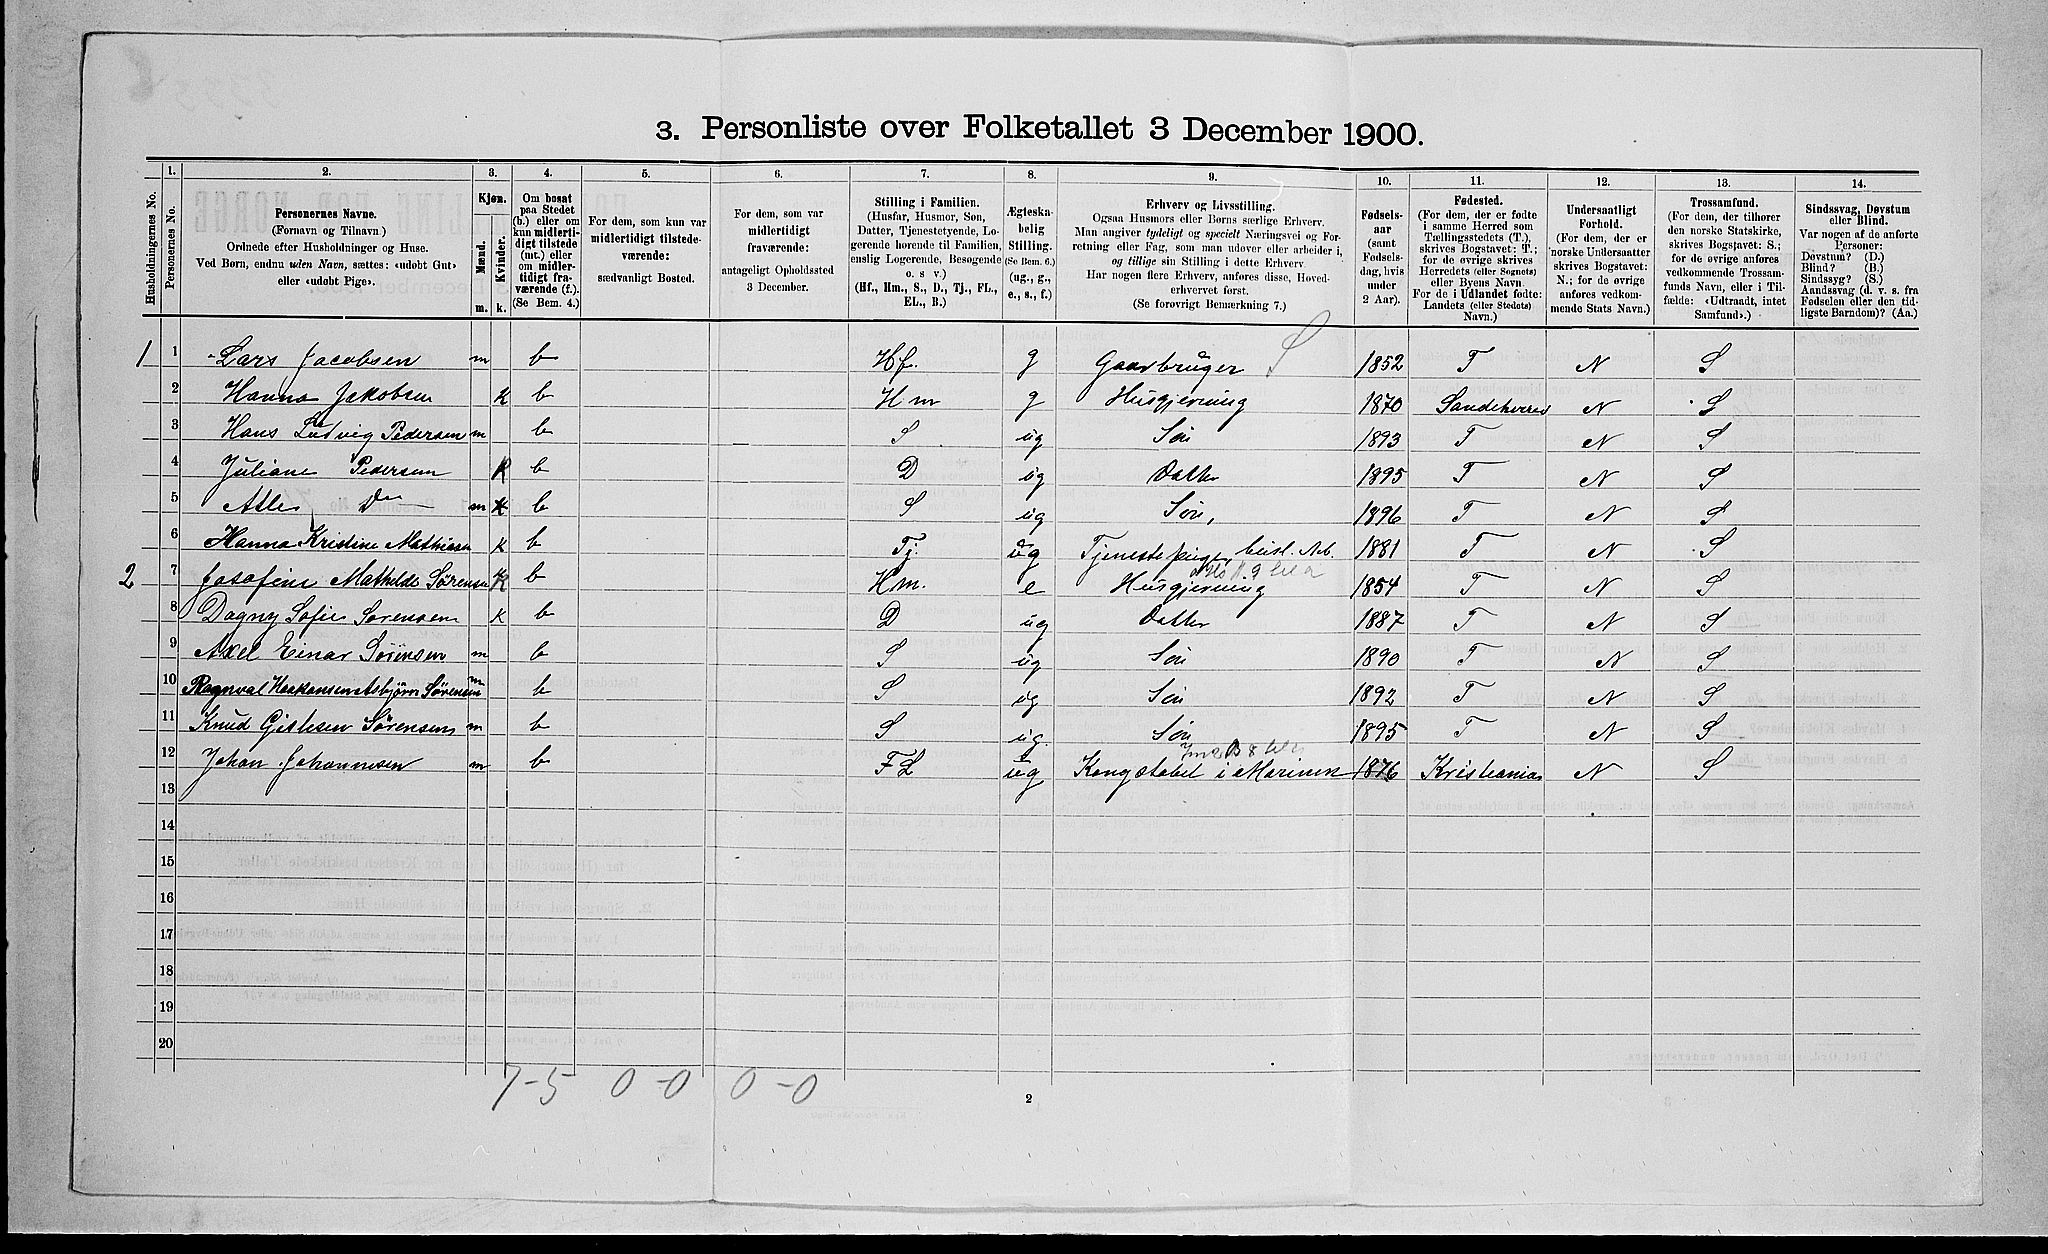 3. Personliste over Folketallet 3 December 1900.
Husholdningernes No.
1. Personernes No.
2. Personernes Navne. (Fornavn og Tilnavn) Ordnede efter Husholdninger og Huse. Ved Børn, endnu uden Navn, sættes: «udøbt Gut» eller «udøbt Pige».
3. Kjøn. Mænd. m. Kvinder. k.
4. Om bosat paa Stedet (b.) eller om kun midlertidigt tilstede (mt.) eller om midlertidigt fraværende (f.). (Se Bem. 4.)
5. For dem, som kun var midlertidigt tilstedeværende: sædvanligt Bosted.
6. For dem, som var midlertidigt fraværende: antageligt Opholdssted 3 December.
7. Stilling i Familien. (Husfar, Husmor, Søn, Datter, Tjenestetyende, Logerende hørende til Familien, enslig Logerende, Besøgende o. s v.) (Hf., Hm., S., D., Tj., FL., EL., B.)
8. Ægteskabelig Stilling. (Se Bem. 6.) (ug., g., e., s., f.)
9. Erhverv og Livsstilling. Ogsaa Husmors eller Børns særlige Erhverv. Man angiver tydeligt og specielt Næringsvei og Forretning eller Fag, som man udøver eller arbeider i, og tillige sin Stilling i dette Erhverv. Har nogen flere Erhverv, anføres disse, Hovederhvervet først. (Se forøvrigt Bemærkning 7.)
10. Fødselsaar (samt Fødselsdag, hvis under 2 Aar).
11. Fødested. (For dem, der er fødte i samme Herred som Tællingsstedets (T.), skrives Bogstavet: T.; for de øvrige skrives Herredets (eller Sognets) eller Byens Navn. For de i Udlandet fødte: Landets (eller Stedets) Navn.)
12. Undersaatligt Forhold. (For dem, der er norske Undersaatter skrives Bogstavet: N.; for de øvrige anføres vedkommende Stats Navn.)
13. Trossamfund. (For dem, der tilhører den norske Statskirke, skrives Bogstavet: S.; for de øvrige anføres vedkommende Trossamfunds Navn, eller i Tilfælde: «Udtraadt, intet Samfund».)
14. Sindssvag, Døvstum eller Blind. Var nogen af de anførte Personer: Døvstum? (D.) Blind? (B.) Sindssyg? (S.) Aandssvag (d. v. s. fra Fødselen eller den tidligste Barndom)? (Aa.)
1 1 Lars Jacobsen m b Hf. g Gaarbruger S 1852 T N S
2 Hanna Jakobsen K b Hm g Husgjerning 1870 Sandeherred N S
3 Hans Ludvig Pedersen m b S ug Søn 1893 T N S
4 Juliane Pedersen K b D ug Datter 1895 T N S
5 Atle Do m b S ug Søn, 1896 T N S
6 Hanna Kristine Mathiasen K b Tj. ug Tjenestepige, 1881 T N S
2 7 Josefine Mathilde Sørensen K b Hm. e Husgjerning 1854 T N S
8 Dagny Sofie Sørensen K b D ug Datter 1887 T N S
9 Axel Einar Sørensen m b S ug Søn 1890 T N S
10 Ragnval Haakonsen Asbjørn Sørensen m b S ug Søn 1892 T N S
11 Knud Gislesen Sørensen m b S ug. Søn 1895 T N S
12 Johan Johannesen m b FL ug Kongstabel i Marinen 1876 Kristiania N S
13
14
15
16
17
18
19
20
7-5 0-0 0-0
2